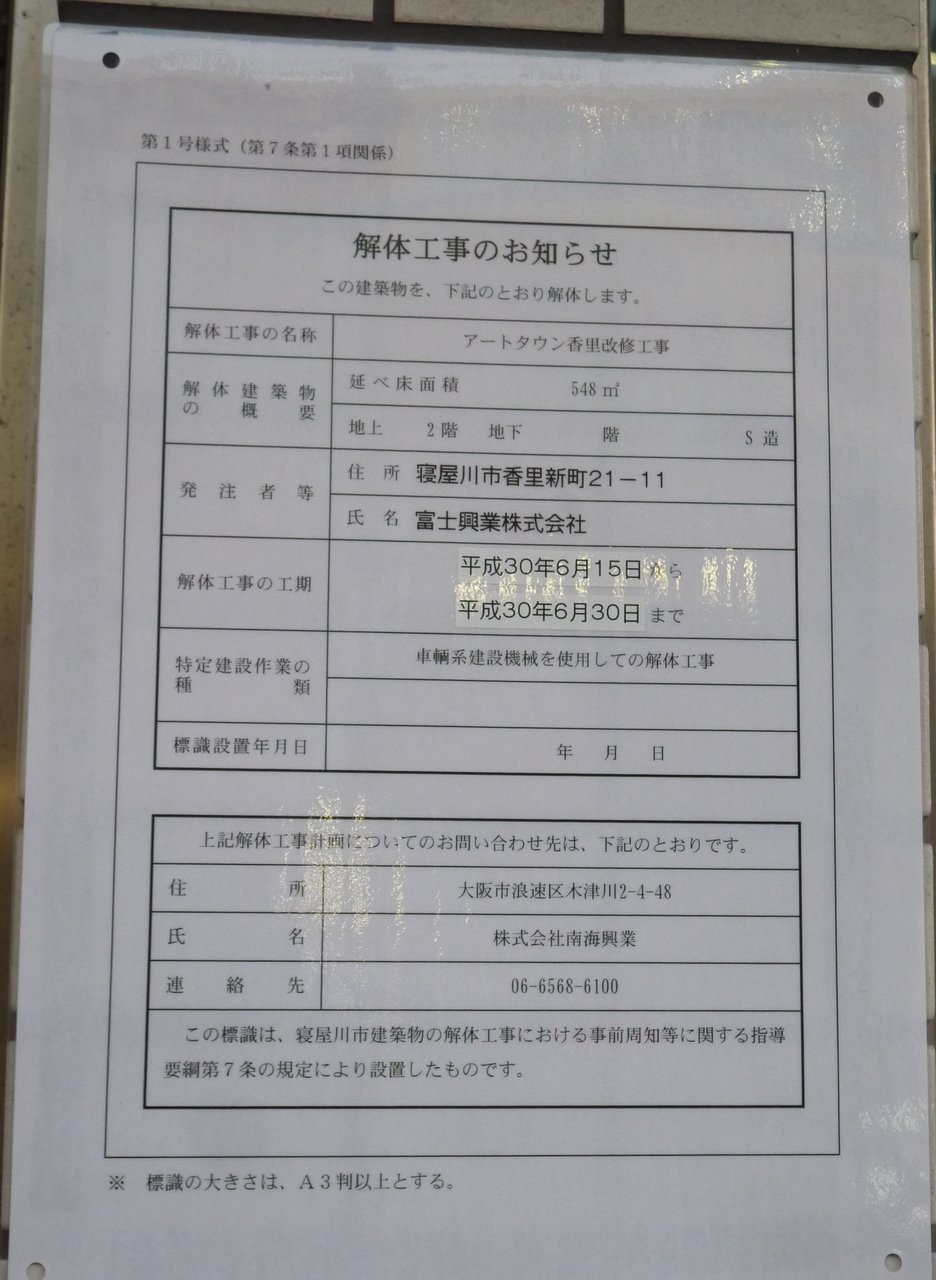 第1号様式（第7条第1項関係）
解体工事のお知らせ
この建築物を、下記のとおり解体します。
解体工事の名称 アートタウン香里改修工事
解体建築物の概要 延べ床面積 548㎡
地上 2階 地下 階 S造
発注者等 住所 寝屋川市香里新町21－11
氏名 富士興業株式会社
解体工事の工期 平成30年6月15日から
平成30年6月30日まで
特定建設作業の種類 車輌系建設機械を使用しての解体工事
標識設置年月日 年 月 日
上記解体工事計画についてのお問い合わせ先は、下記のとおりです。
住所 大阪市浪速区木津川2-4-48
氏名 株式会社南海興業
連絡先 06-6568-6100
この標識は、寝屋川市建築物の解体工事における事前周知等に関する指導
要綱第7条の規定により設置したものです。
※ 標識の大きさは、A3判以上とする。